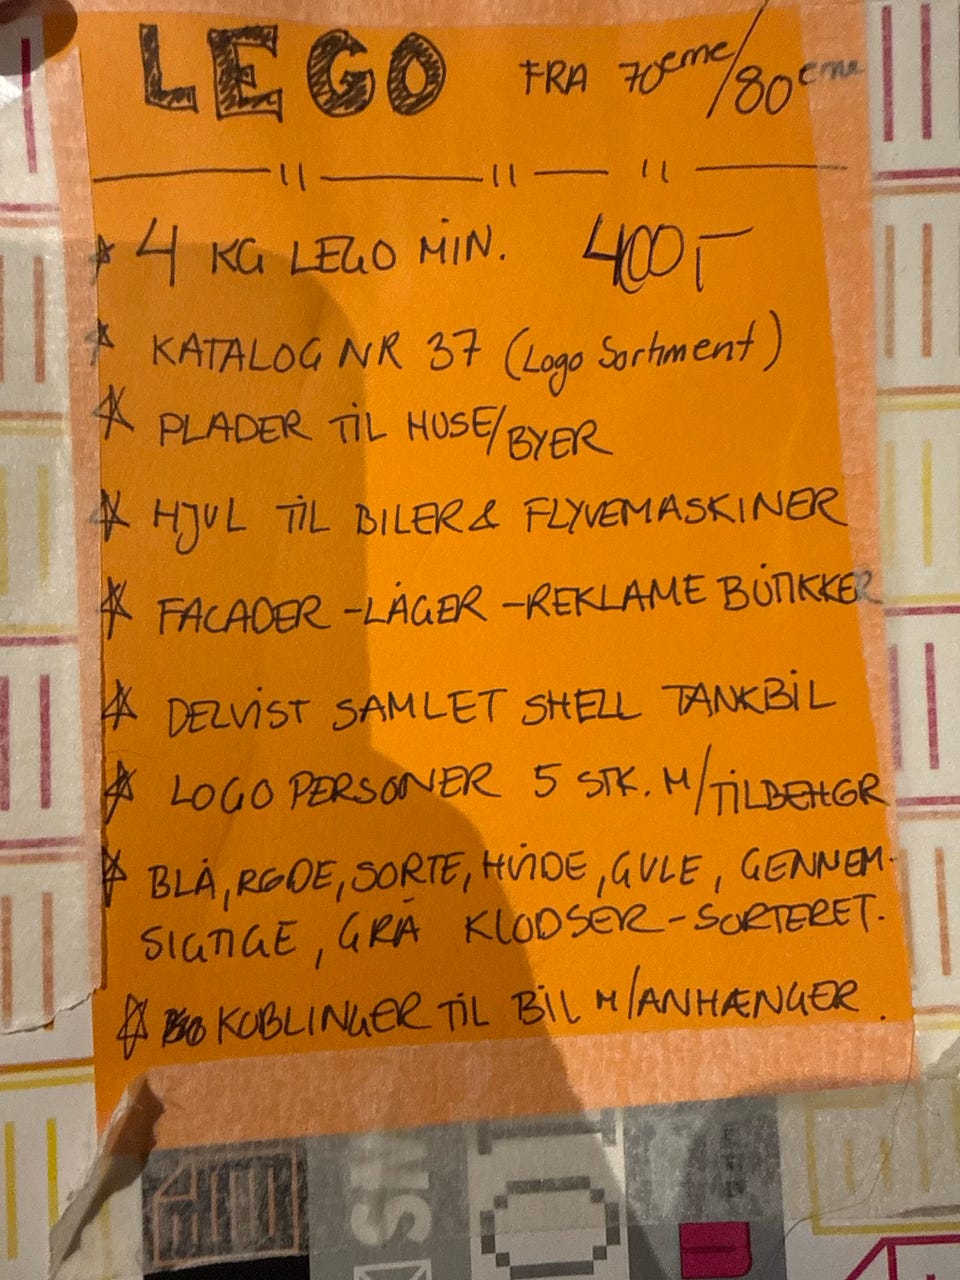 LEGO FRA 70eme/80eme
4 KG LEGO MIN. 400,-
KATALOG NR 37 (Logo Sortiment)
PLADER TIL HUSE/BYER
HJUL TIL BILER & FLYVEMASKINER
FACADER - LÅGER - REKLAME BUTIKKER
DELVIST SAMLET SHELL TANKBIL
LOGO PERSONER 5 STK. M/TILBEHØR
BLÅ, RØDE, SORTE, HVIDE, GULE, GENNEM-
SIGTIGE, GRÅ KLODSER - SORTERET.
KOBLINGER TIL BIL M/ANHÆNGER.